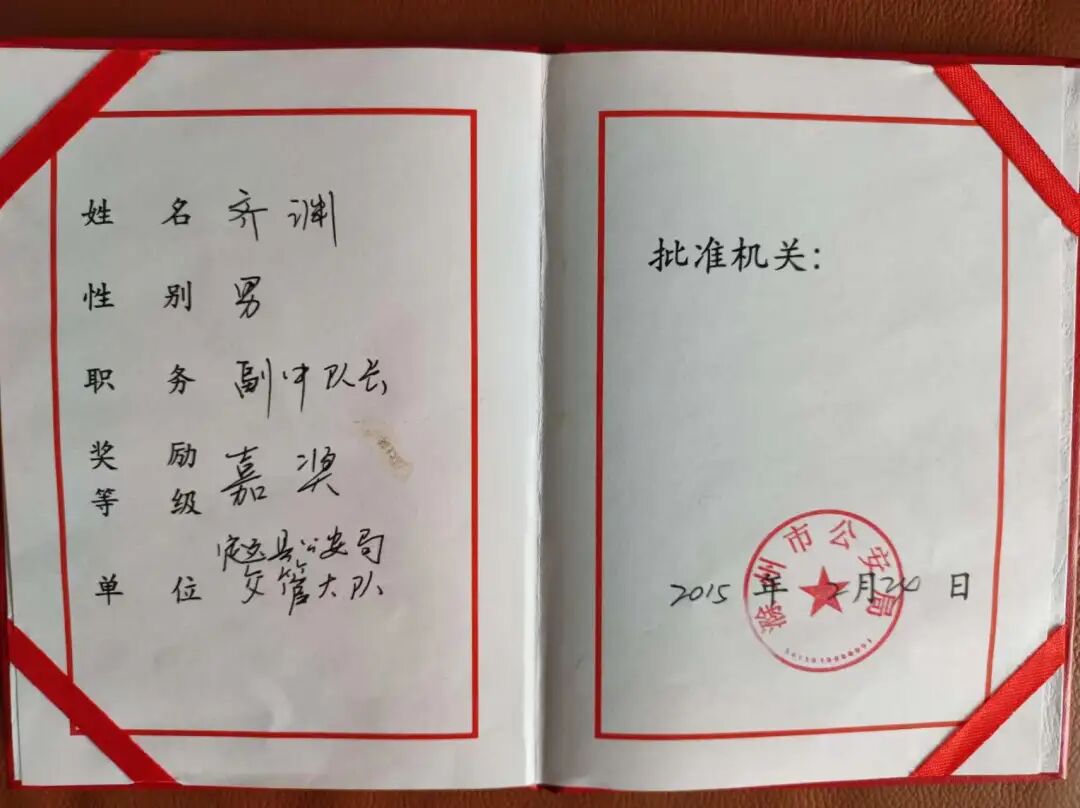 姓名 齐渊
性别 男
职务 副中队长
奖励等级 嘉奖
单位 定远县公安局
交管大队
批准机关：
滁州市公安局
2015年2月24日